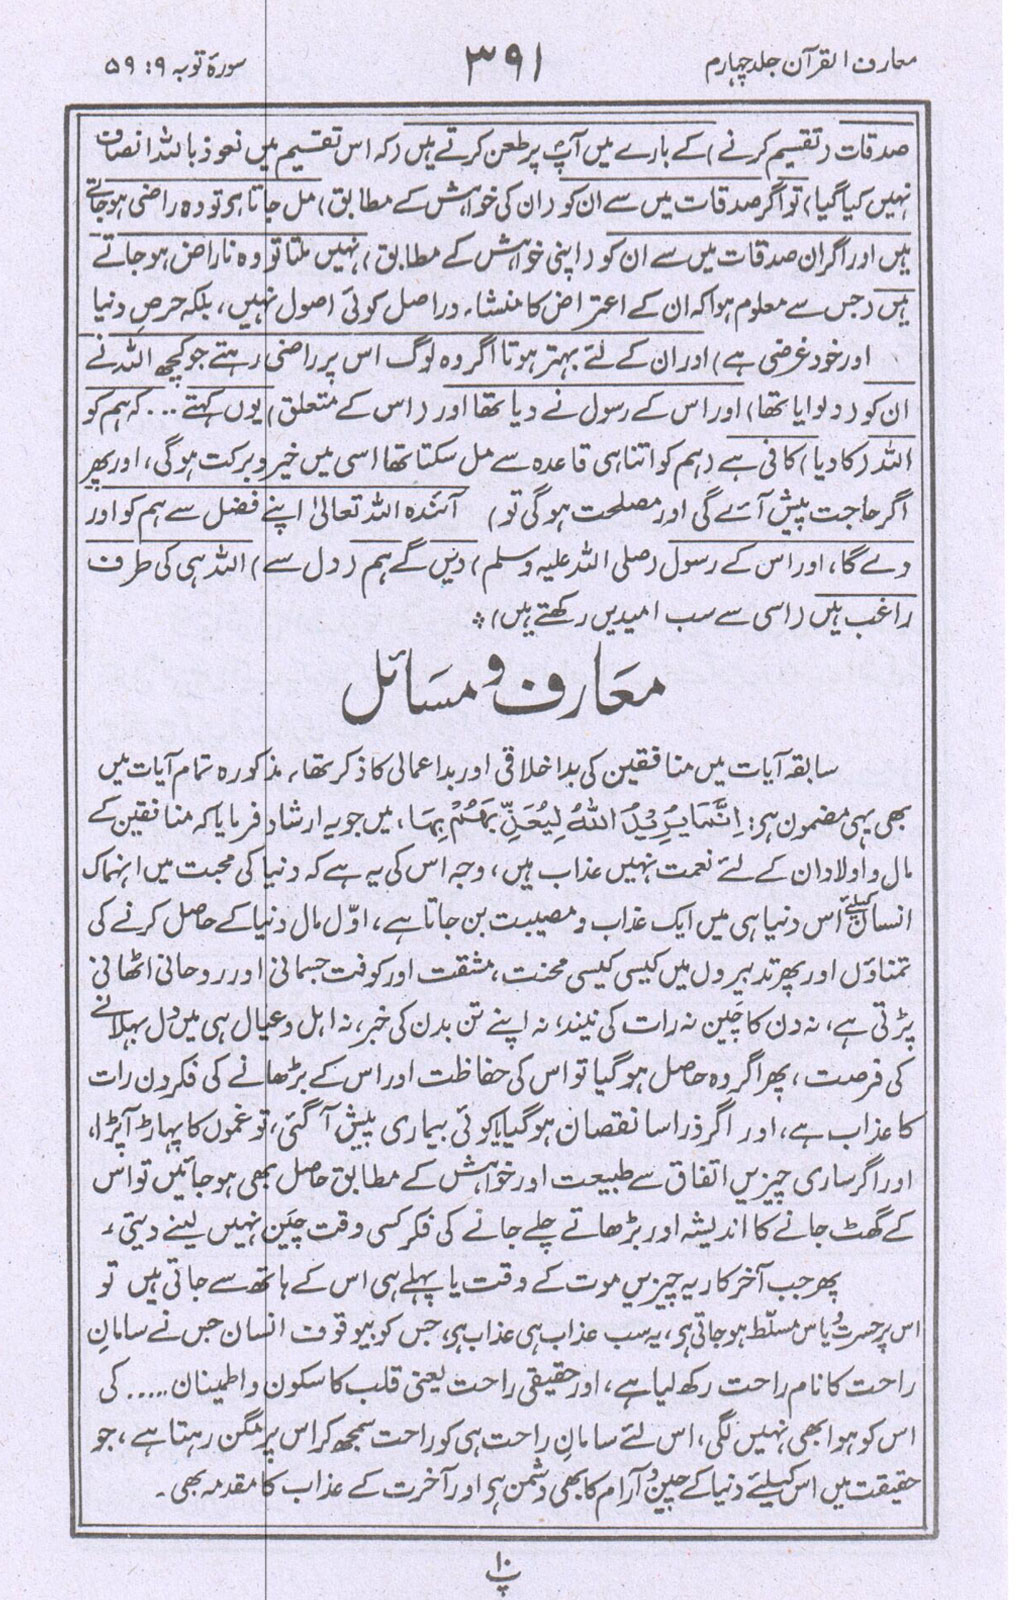 معارف القرآن جلد چہارم
۳۹۱
سورۂ توبہ ۹: ۵۹
صدقات (تقسیم کرنے) کے بارے میں آپؐ پر طعن کرتے ہیں (کہ اس تقسیم میں نعوذ باللہ انصاف
نہیں کیا گیا) تو اگر صدقات میں سے ان کو (ان کی خواہش کے مطابق) مل جاتا ہی تو وہ راضی ہو جاتے
ہیں اور اگر ان صدقات میں سے ان کو (اپنی خواہش کے مطابق) نہیں ملتا تو وہ ناراض ہو جاتے
ہیں (جس سے معلوم ہوا کہ ان کے اعتراض کا منشاء دراصل کوئی اصول نہیں، بلکہ حرصِ دنیا
اور خود غرضی ہے) اور ان کے لئے بہتر ہوتا اگر وہ لوگ اس پر راضی رہتے جو کچھ اللہ نے
ان کو (دلوایا تھا) اور اس کے رسول نے دیا تھا اور (اس کے متعلق) یوں کہتے ... کہ ہم کو
اللہ (کا دیا) کافی ہے (ہم کو اتنا ہی قاعدہ سے مل سکتا تھا اسی میں خیر و برکت ہوگی، اور پھر
اگر حاجت پیش آئے گی اور مصلحت ہوگی تو) آئندہ اللہ تعالیٰ اپنے فضل سے ہم کو اور
دے گا، اور اس کے رسول (صلی اللہ علیہ وسلم) دیں گے ہم (دل سے) اللہ ہی کی طرف
راغب ہیں (اسی سے سب امیدیں رکھتے ہیں) ؞
معارف و مسائل
سابقہ آیات میں منافقین کی بداخلاقی اور بداعمالی کا ذکر تھا، مذکورہ تمام آیات میں
بھی یہی مضمون ہی: اِنَّمَا یُرِیْدُ اللّٰہُ لِیُعَذِّبَھُمْ بِھَا، میں جو یہ ارشاد فرمایا کہ منافقین کے
مال و اولاد ان کے لئے نعمت نہیں عذاب ہیں، وجہ اس کی یہ ہے کہ دنیا کی محبت میں انہماک
انسان کیلئے اس دنیا ہی میں ایک عذاب و مصیبت بن جاتا ہے، اوّل مال دنیا کے حاصل کرنے کی
تمناؤں اور پھر تدبیروں میں کیسی کیسی محنت، مشقت اور کوفت جسمانی اور روحانی اٹھانی
پڑتی ہے، نہ دن کا چَین نہ رات کی نیند، نہ اپنے تن بدن کی خبر، نہ اہل و عیال ہی میں دل بہلانے
کی فرصت، پھر اگر وہ حاصل ہو گیا تو اس کی حفاظت اور اس کے بڑھانے کی فکر دن رات
کا عذاب ہے، اور اگر ذرا سا نقصان ہو گیا یا کوئی بیماری پیش آ گئی، تو غموں کا پہاڑ آپڑا،
اور اگر ساری چیزیں اتفاق سے طبیعت اور خواہش کے مطابق حاصل بھی ہو جائیں تو اس
کے گھٹ جانے کا اندیشہ اور بڑھاتے چلے جانے کی فکر کسی وقت چَین نہیں لینے دیتی،
پھر جب آخر کار یہ چیزیں موت کے وقت یا پہلے ہی اس کے ہاتھ سے جاتی ہیں تو
اس پر حسرت و یاس مسلّط ہو جاتی ہی، یہ سب عذاب ہی عذاب ہی، جس کو بیوقوف انسان جس نے سامانِ
راحت کا نام راحت رکھ لیا ہے، اور حقیقی راحت یعنی قلب کا سکون و اطمینان ..... کی
اس کو ہوا بھی نہیں لگی، اس لئے سامانِ راحت ہی کو راحت سمجھ کر اس پر مگن رہتا ہے، جو
حقیقت میں اس کیلئے دنیا کے چین و آرام کا بھی دشمن ہی اور آخرت کے عذاب کا مقدمہ بھی۔
۱۰
پ